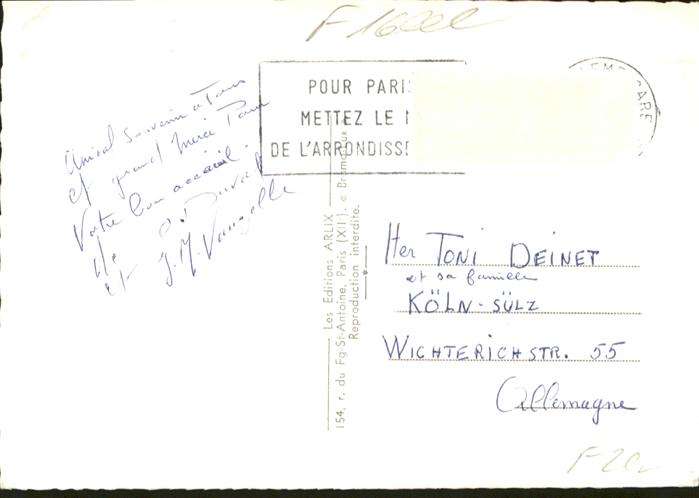 F 1600
POUR PARIS
METTEZ LE
DE L'ARRONDISSE
Amical souvenir à Tous
et grand merci Pour
Votre bon accueil.
et J.M.
Les Editions ARLIX
154, r. du Fg-St-Antoine, Paris (XII).
Reproduction interdite.
Her TONI DEINET
et sa famille
KÖLN-SÜLZ
WICHTERICHSTR. 55
Allemagne